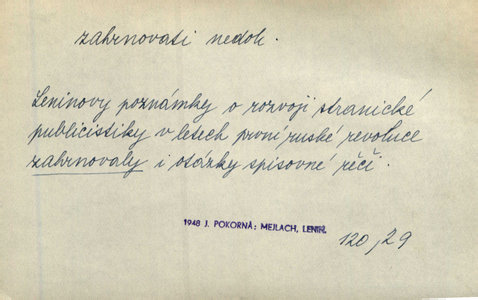 zahrnovati nedok.
Leninovy poznámky o rozvoji stranické
publicistiky v letech první ruské revoluce
zahrnovaly i otázky spisovné řěči.
1948 J. POKORNÁ: MEJLACH, LENIN.
120,29